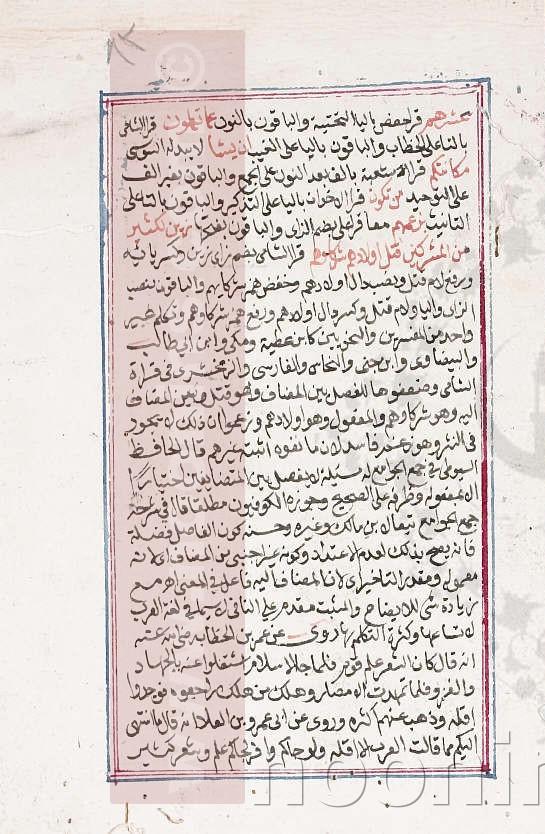 يحشرهم قرا حفص باليا التحتية والباقون بالنون عما تعملون قرا الشامي
بالتا على الخطاب والباقون باليا على الغيب ان يشا لا يبدله السوسي
مكانتكم قرا شعبة بالف بعد النون على الجمع والباقون بغير الف
على التوحيد من تكون قرا الاخوان باليا على التذكير والباقون بالتا على
التانيث بزعمهم معا قرا علي بضم الزاى والباقون بفتحها زين لكثير
من المشركين قتل اولادهم شركاؤهم قرا الشامي بضم زاى زين وكسر يايه
ورفع لام قتل ونصب دال اولادهم وخفض همز شركايهم والباقون بنصب
الزاى واليا ولام قتل وكسر دال اولادهم ورفع همز شركاوهم وتكلم غير
واحد من المفسرين والنحويين كابن عطية ومكي وابن ابي طالب
والبيضاوى وابن جنى والنحاس والفارسى والزمخشرى فى قراة
الشامى وضعفوها للفصل بين المضاف وهو قتل وبين المضاف
اليه وهو شركاوهم والمفعول وهو اولادهم وزعموا ان ذلك لا يجوز
فى النثر وهو زعم فاسد لان ما نفوه اثبته غيرهم قال الحافظ
السيوطى فى جمع الجوامع له مسئلة لا يفصل بين المتضايفين اختيارا
الا بمفعوله وظرفه على الصحيح وجوزه الكوفيون مطلقا قال فى شرحه
همع الهوامع تبعا لابن مالك وغيره وحسنه كون الفاصل فضلة
فانه يصلح بذلك لعدم الاعتداد وكونه غير اجنبى من المضاف اى لانه
معموله ومقدر التاخير اى لان المضاف اليه فاعل فى المعنى اه مع
زيادة شى للايضاح والمثبت مقدم على النافى لا سيما فى لغة العرب
لاتساعها وكثرة التكلم بها روى عن عمر بن الخطاب رضى الله عنه
انه قال كان الشعر علم قوم فلما جا الاسلام اشتغلوا عنه بالجهاد
والغزو فلما تمهدت الامصار وهلك من هلك راجعوه فوجدوا
اقله وذهب عنهم كثره وروى عن ابى عمرو بن العلا انه قال ما انتهى
اليكم مما قالت العرب الا اقله ولو جاكم وافرا لجاكم علم وشعر كثير
noorin